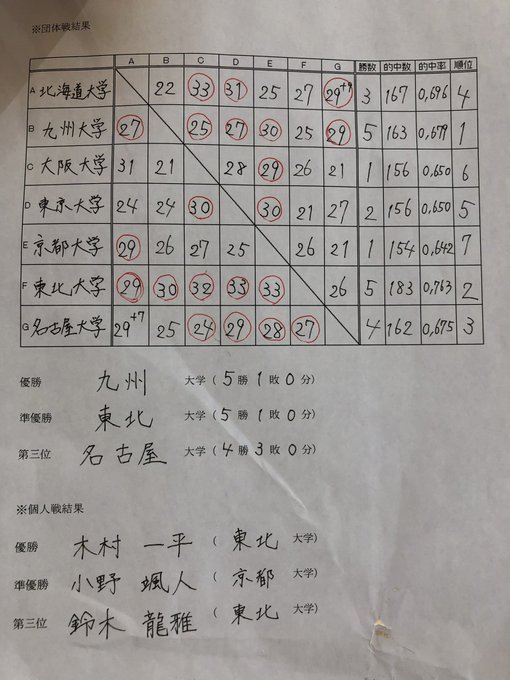 ※団体戦結果
A B C D E F G 勝数 的中数 的中率 順位
A 北海道大学 22 33 31 25 27 29+9 3 167 0,696 4
B 九州大学 27 25 27 30 25 29 5 163 0,679 1
C 大阪大学 31 21 28 29 26 21 1 156 0,650 6
D 東京大学 24 24 30 30 21 27 2 156 0,650 5
E 京都大学 29 26 27 25 26 21 1 154 0,642 7
F 東北大学 29 30 32 33 33 26 5 183 0,763 2
G 名古屋大学 29+7 25 24 29 28 27 4 162 0,675 3
優勝 九州 大学(5勝1敗0分)
準優勝 東北 大学(5勝1敗0分)
第三位 名古屋 大学(4勝3敗0分)
※個人戦結果
優勝 木村 一平 (東北 大学)
準優勝 小野 颯人 (京都 大学)
第三位 鈴木 龍雅 (東北 大学)